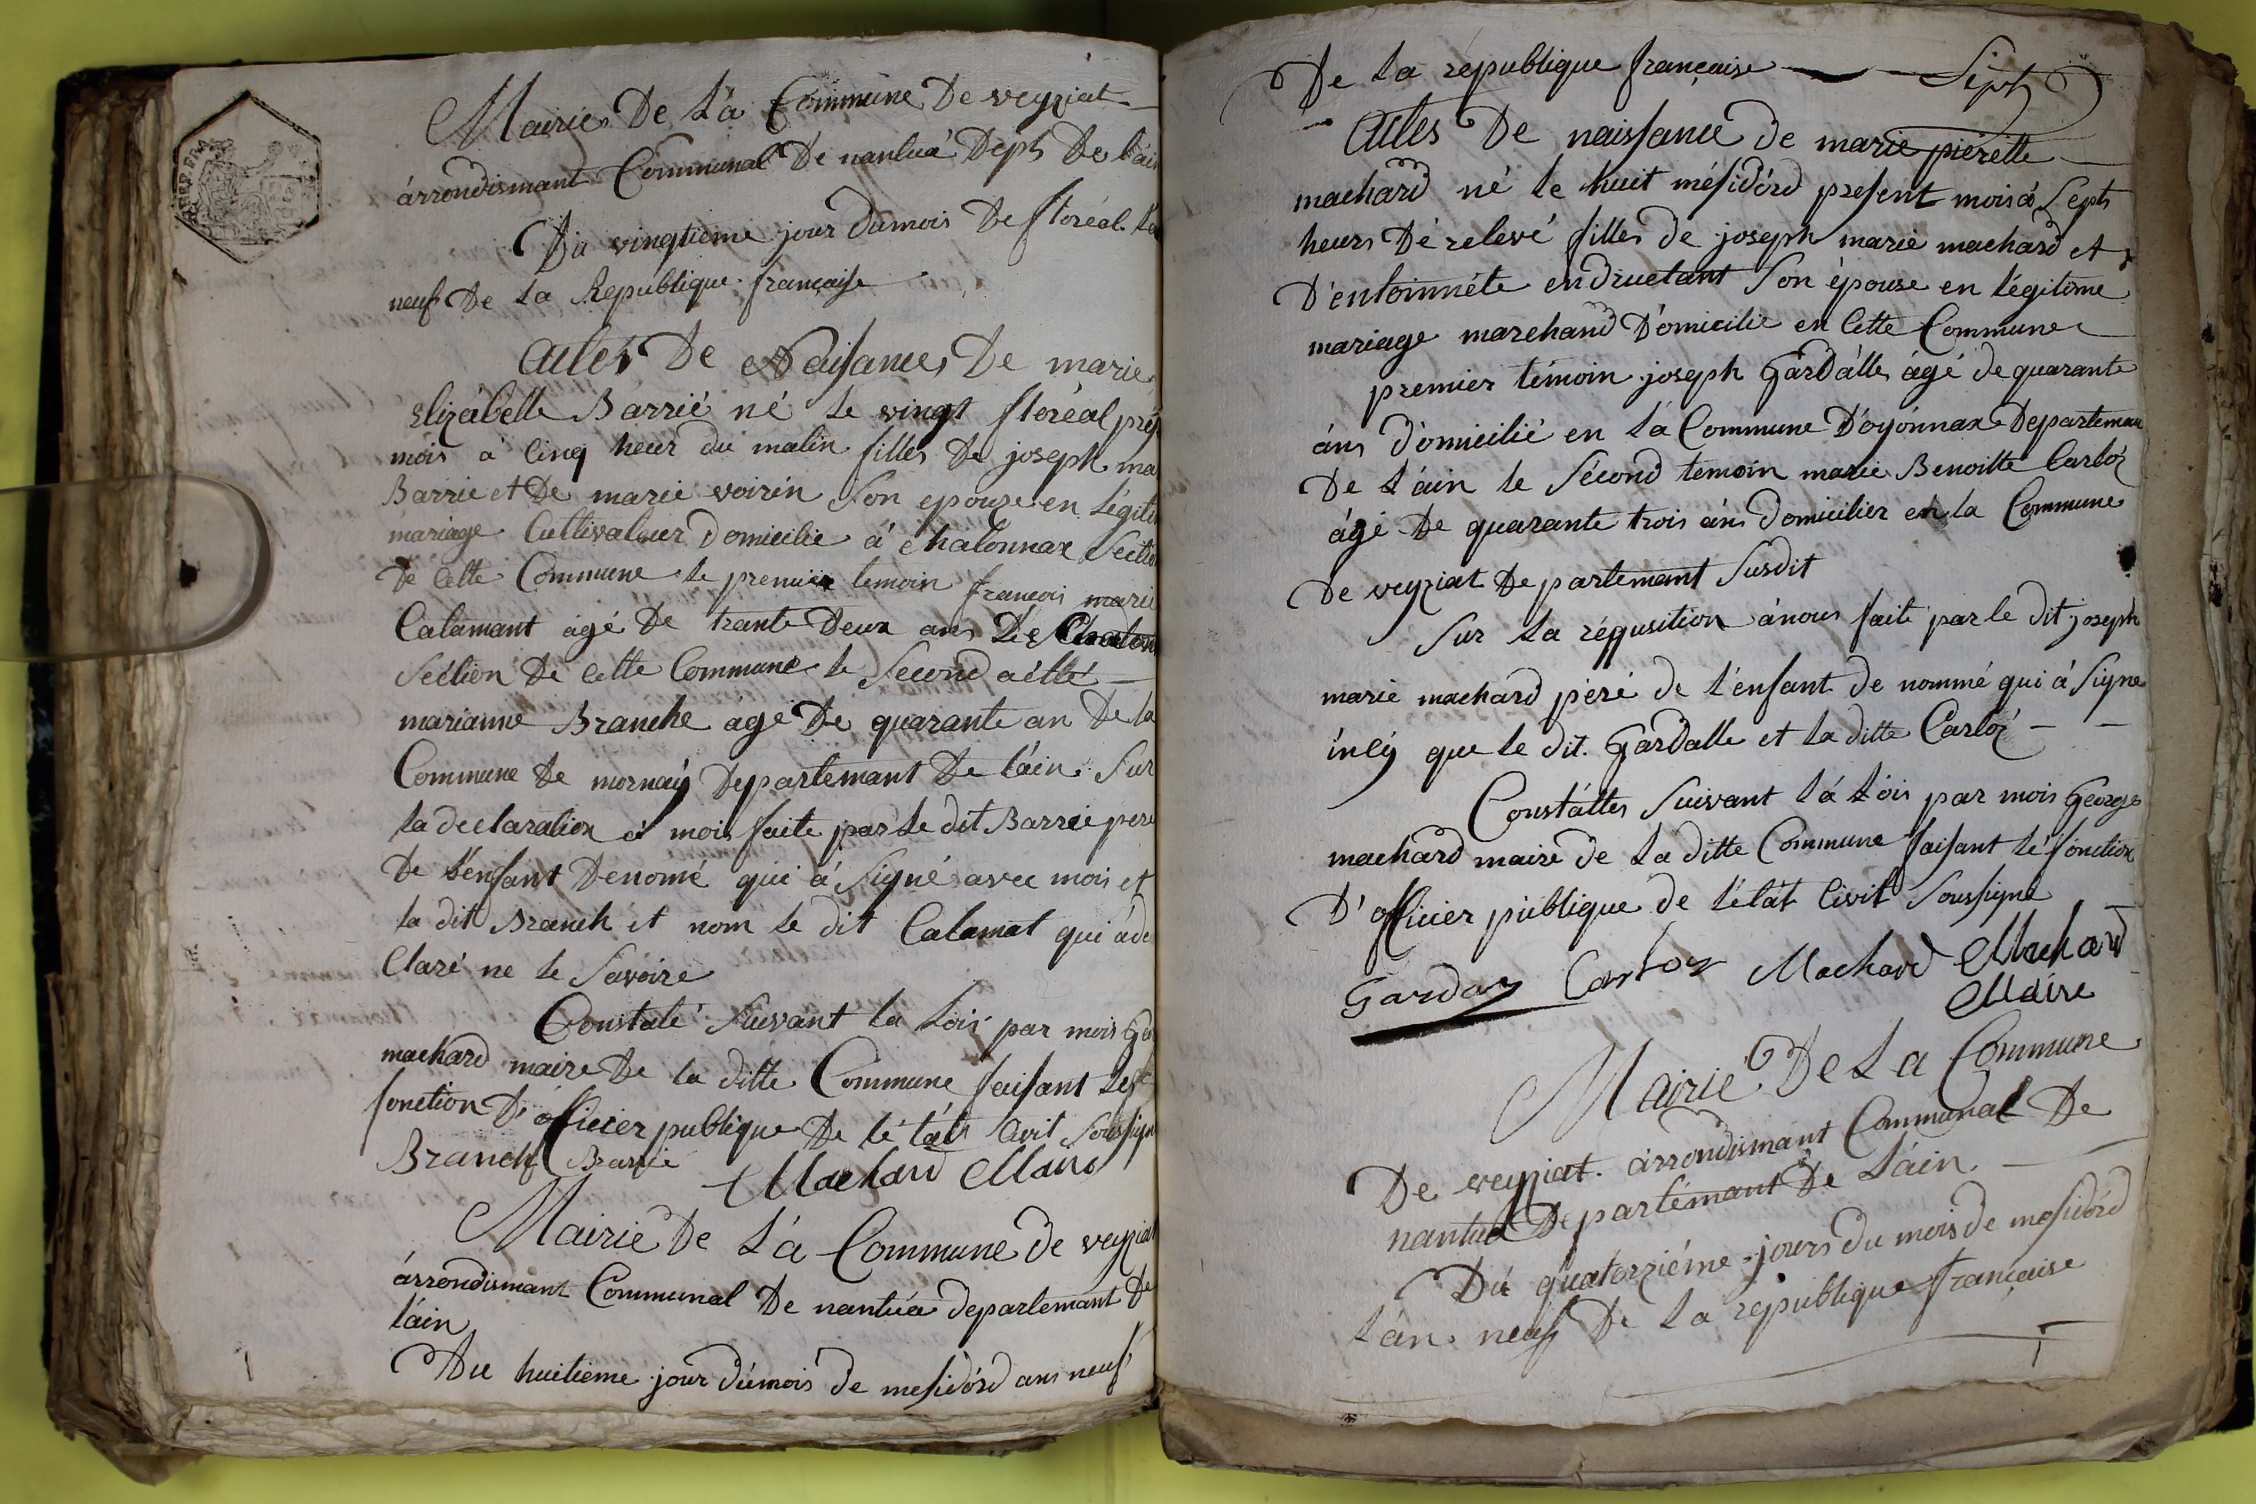 Mairie De La Commune De veyziat
arrondismant Communal De nantua Dept De lain
Du vingtieme jour dumois De floréal
neuf De La Republique française
Actes De Naisance De marie
Elizabelle Barrié né le vingt floréal
mois à Cinq heur du matin filles De joseph
Barrie et De marie voirin Son epouze en
mariage Cultivateur Domicilie à Chatonnax
De Cette Commune le premier temoin francois marie
Calamant agé De trante Deux ans De
Séction De Cette Commune le Second aétté
marianne Branche agé De quarante an De la
Commune De mornay Departemant De lain Sur
la declaration à mois faite par Le dit Barrie pere
De l'enfant Denomé qui à Signé avec mois et
la dit Branch et nom le dit Calamat qui à
Claré ne le Savoire
Constaté Suivant la Lois par mois
machard maire De la ditte Commune faisant
fonction D'officier publique De lé tát Civit
Branch Barrié Machard Maire
Mairie De La Commune de veyziat
arrondismant Communal De nantua departemant De
lain
Du huitieme jour dumois de mesidord ans neuf
De la république française Sept
Actes De naissance de marie pierette
machard né le huit mésidórd present mois à Sept
heurs De relevé filles de joseph marie machard et
D'entoinnéte endructant Son épouse en légitime
mariage marchand D'omicilie en Cette Commune
premier témoin joseph Gardalle ágé de quarante
áns d'omicilié en lá Commune D'oyónnax Departemau
De L'ain le Sécond temoin marie Benoitte Carloz
ágé De quarante trois áns domicilier en la Commune
De veyziat Departemant Susdit
Sur La réqusition ánous faite par le dit joseph
marie machard péré de l'enfant de nommé qui à Signe
incy que le dit Gardalle et la ditte Carloz
Constáttes Suivant Lá Lois par mois George
machard maire de La ditte Commune faisant lé fonction
D'officier publique de létát Civit Soussigne
Garday Carloz Machard Machard
Maire
Mairie De La Commune
De veyziat arrondismant Communal De
nantua Departémant De L'ain
Du quatorziéme jours du mois de mesidórd
L'án neuf De La république française